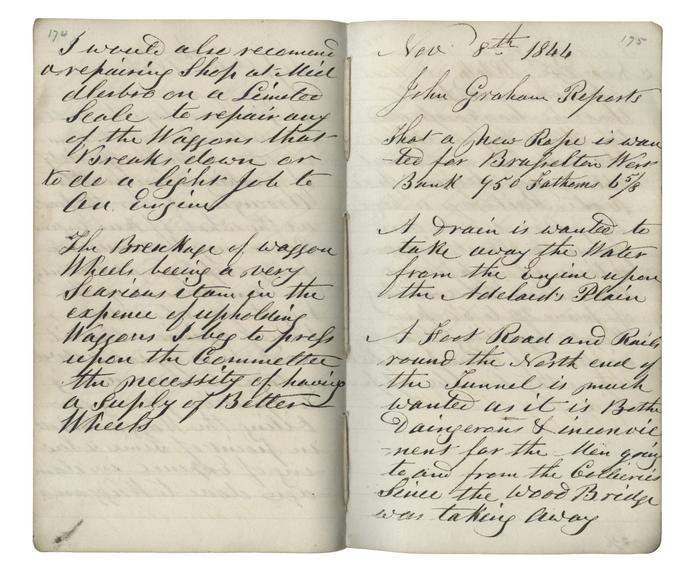 174
I would also recomend
a repairing Shop at Mid
dlesbro on a Limited
Scale to repair any
of the Waggons that
Breaks down or
to do a light Job to
an Engine
The Breakage of waggon
Wheels beeing a very
Searious itam in the
expence of upholding
Waggons I beg to press
upon the Committee
the necessity of having
a Suply of Better
Wheels
175
Nov 8th 1844
John Graham Reports
that a New Rope is wan
-ted for Brusselton West
Bank 950 Fathoms 6 5/8
A Drain is wanted to
take away the Water
from the Engine upon
the Adelaid's Plain
A Foot Road and Rails
round the North end of
the Tunnel is much
wanted as it is Bothe
Daingerous & inconvie
-nent for the Men going
to and from the Collieries
Since the Wood Bridge
was taking away